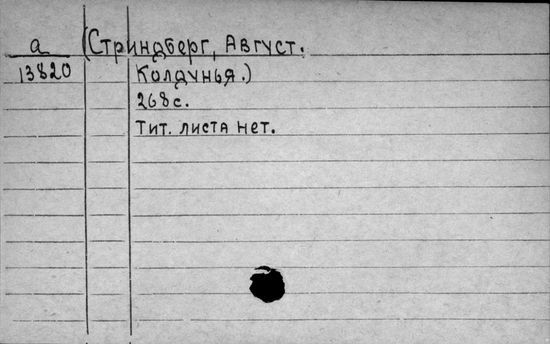 а (Стриндберг, Август.
13820 Колдунья.)
268 с.
Тит. листа нет.